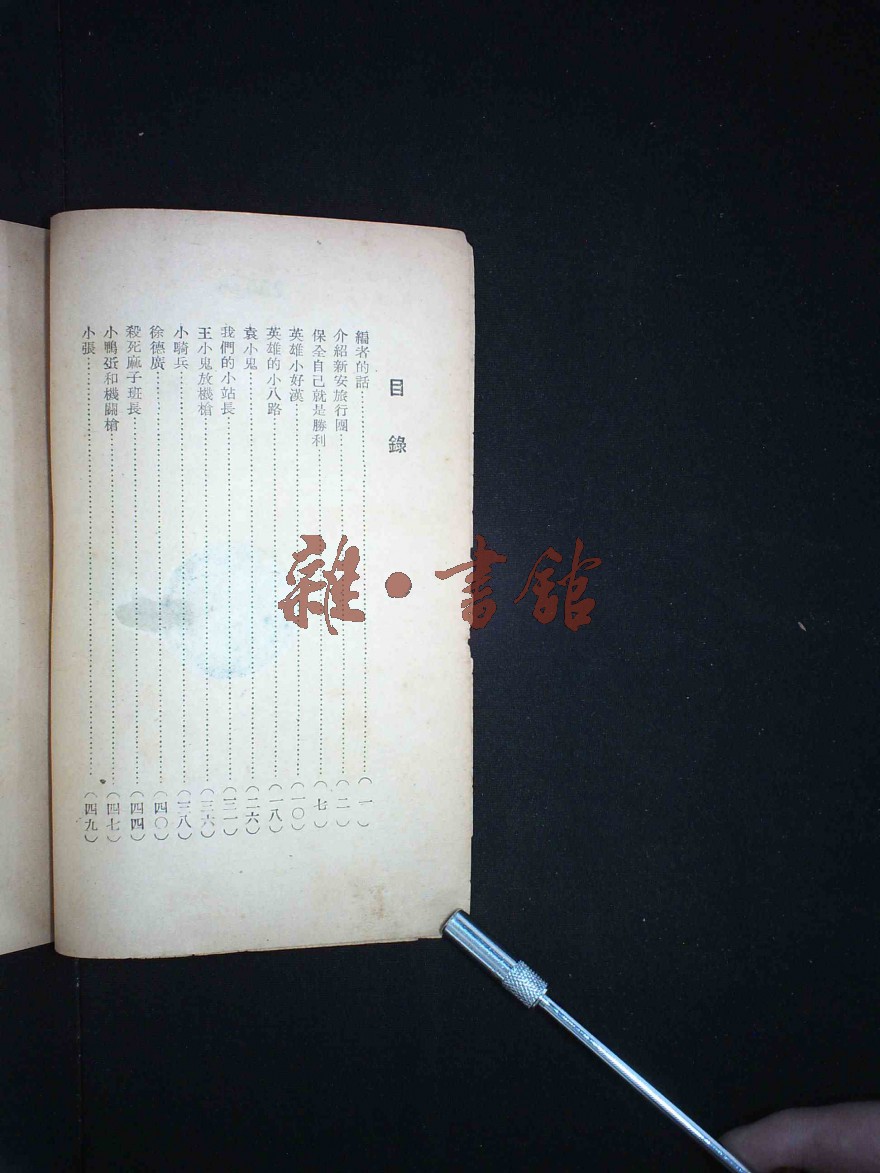 目錄
編者的話……(一)
介紹新安旅行團……(二)
保全自己就是勝利……(七)
英雄小好漢……(一〇)
英雄的小八路……(一八)
袁小鬼……(二六)
我們的小站長……(三一)
王小鬼放機槍……(三六)
小騎兵……(三八)
徐德廣……(四〇)
殺死麻子班長……(四四)
小鴨蛋和機關槍……(四七)
小張……(四九)
雜·書舘